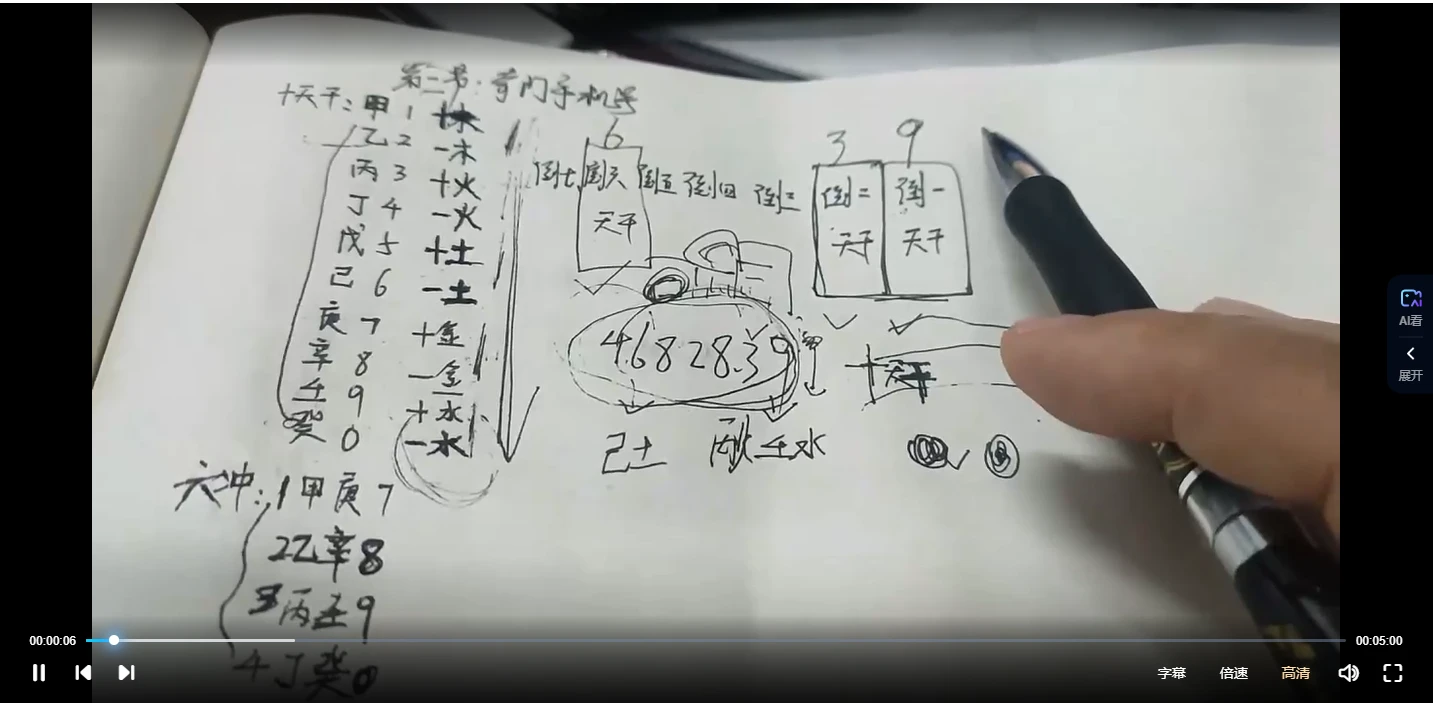 第二节：奇门手机号
十天干：甲 1 +木
乙 2 -木
丙 3 +火
丁 4 -火
戊 5 +土
己 6 -土
庚 7 +金
辛 8 -金
壬 9 +水
癸 0 -水
6
倒七 倒六 倒五 倒四 倒三
天干
3 9
倒二 倒一
天干 天干
4682839
己土 丙火 壬水
十天干
六冲：1甲庚7
2乙辛8
3丙壬9
4丁癸0
AI看
展开
00:00:06
00:05:00
字幕 倍速 高清